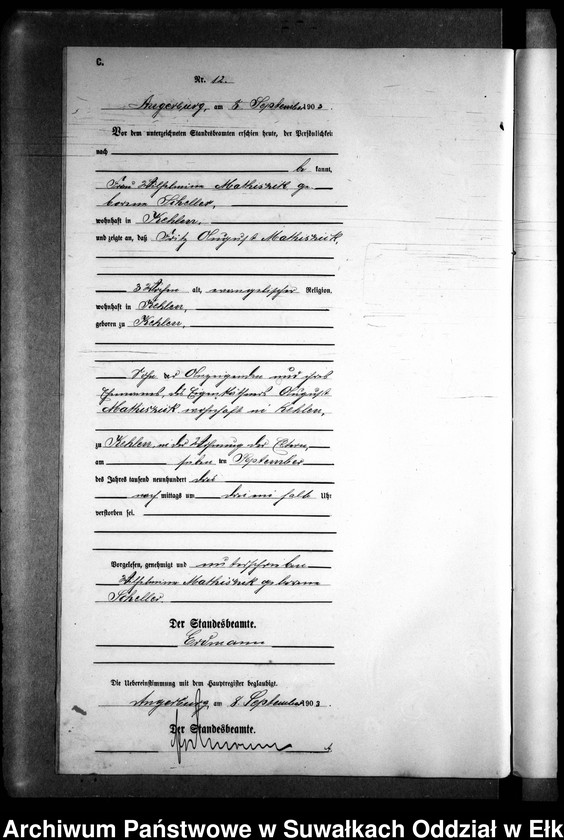 C.
Nr. 12.
Angerburg, am 5 September 1903.
Vor dem unterzeichneten Standesbeamten erschien heute, der Persönlichkeit
nach
be kannt,
Frau Wilhelmine Mathiszik ge
borene Scheller,
wohnhaft in Kehlen,
und zeigte an, daß Fritz August Mathiszik,
3 Wochen alt, evangelischer Religion,
wohnhaft in Kehlen,
geboren zu Kehlen,
Sohn der Anzeigenden und ihres
Ehemannes, des Eigenkäthners August
Mathiszik wohnhaft in Kehlen,
zu Kehlen, in der Wohnung der Eltern,
am ten September
des Jahres tausend neunhundert drei
nach mittags um drei ein halb Uhr
verstorben sei.
Vorgelesen, genehmigt und unterschrieben
Wilhelmine Mathiszik geborene
Scheller.
Der Standesbeamte.
Erdmann
Die Uebereinstimmung mit dem Hauptregister beglaubigt.
Angerburg, am 8. September 1903.
Der Standesbeamte.
Erdmann
Archiwum Państwowe w Suwałkach Oddział w Ełk